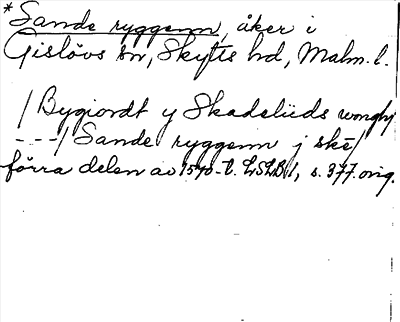 *Sande ryggenn, åker i
Gislövs sn, Skytts hd, Malm. l.
/Bygiordt y Skadeliids wongh/
---/ Sande ryggenn j skē/
förra delen av 1570-t. LSLB 1, s. 377. orig.